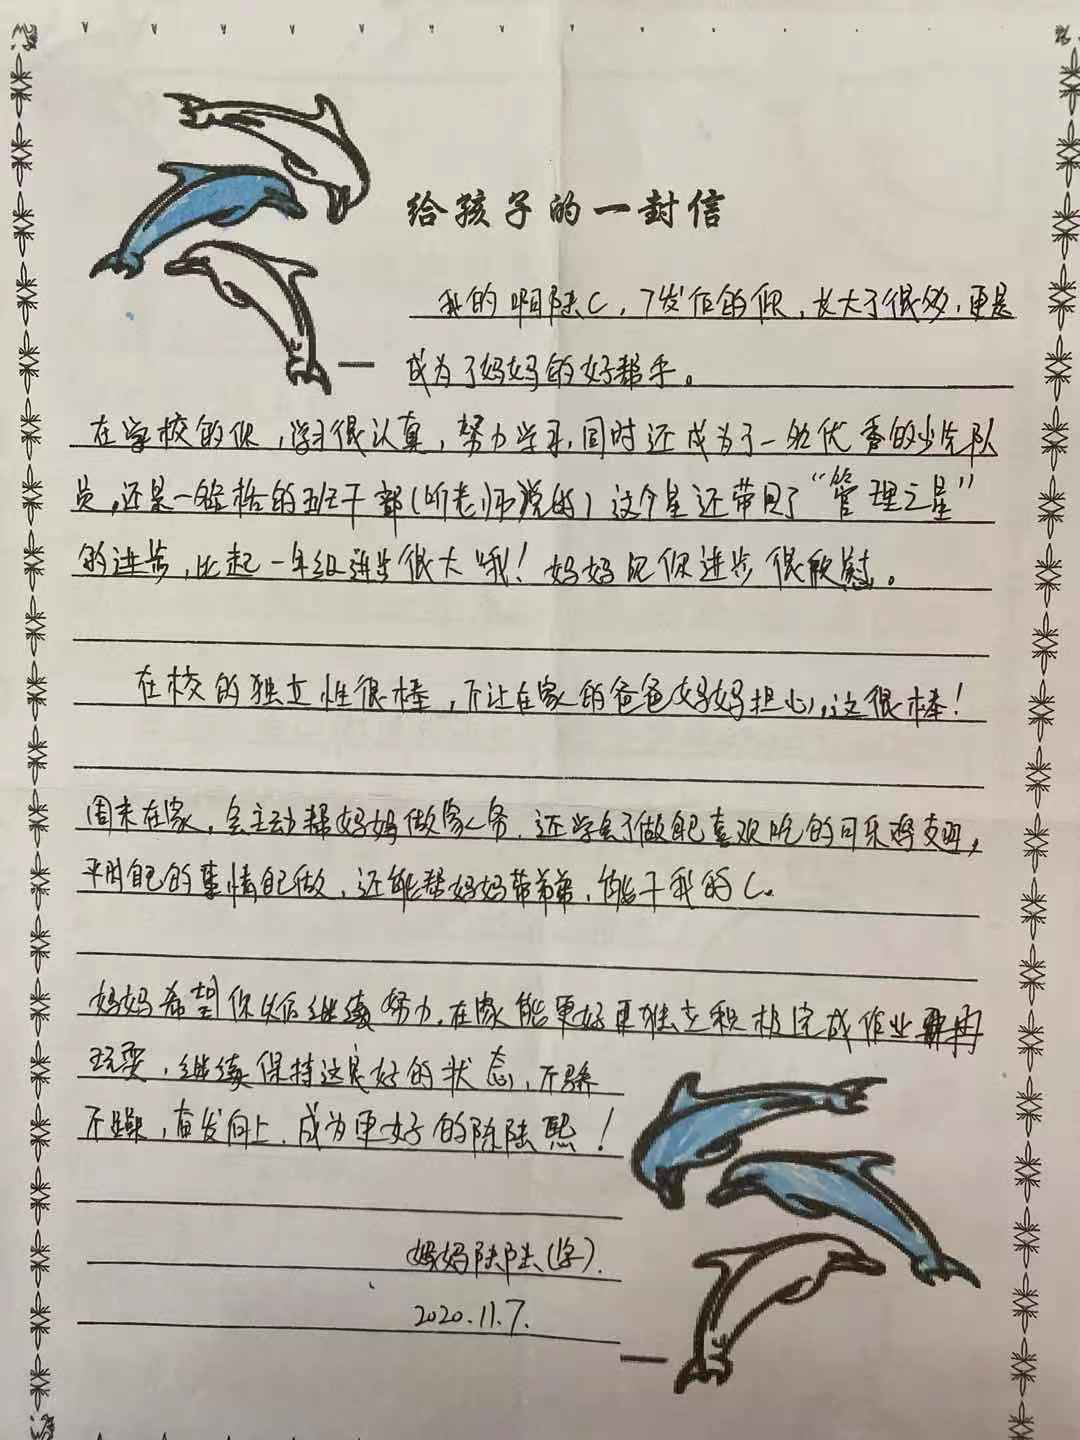 给孩子的一封信
我的陆C，7岁后的你，长大了很多，更是
成为了妈妈的好帮手。
在学校的你，学习很认真，努力学习，同时还成为了一名优秀的少先队
员，还是一名合格的班干部（听老师说的）这个星还带回了“管理之星”
的进步，比起一年级进步很大哦！妈妈见你进步很欣慰。
在校的独立性很棒，不让在家的爸爸妈妈担心，这很棒！
周末在家，会主动帮妈妈做家务，还学会了做自己喜欢吃的可乐鸡翅，
平时自己的事情自己做，还能帮妈妈带弟弟，能干我的C。
妈妈希望你以后继续努力，在家能更好更独立积极完成作业再
玩耍，继续保持这良好的状态，不骄
不躁，奋发向上，成为更好的陈陆熙！
妈妈陆陆（字）.
2020.11.7.